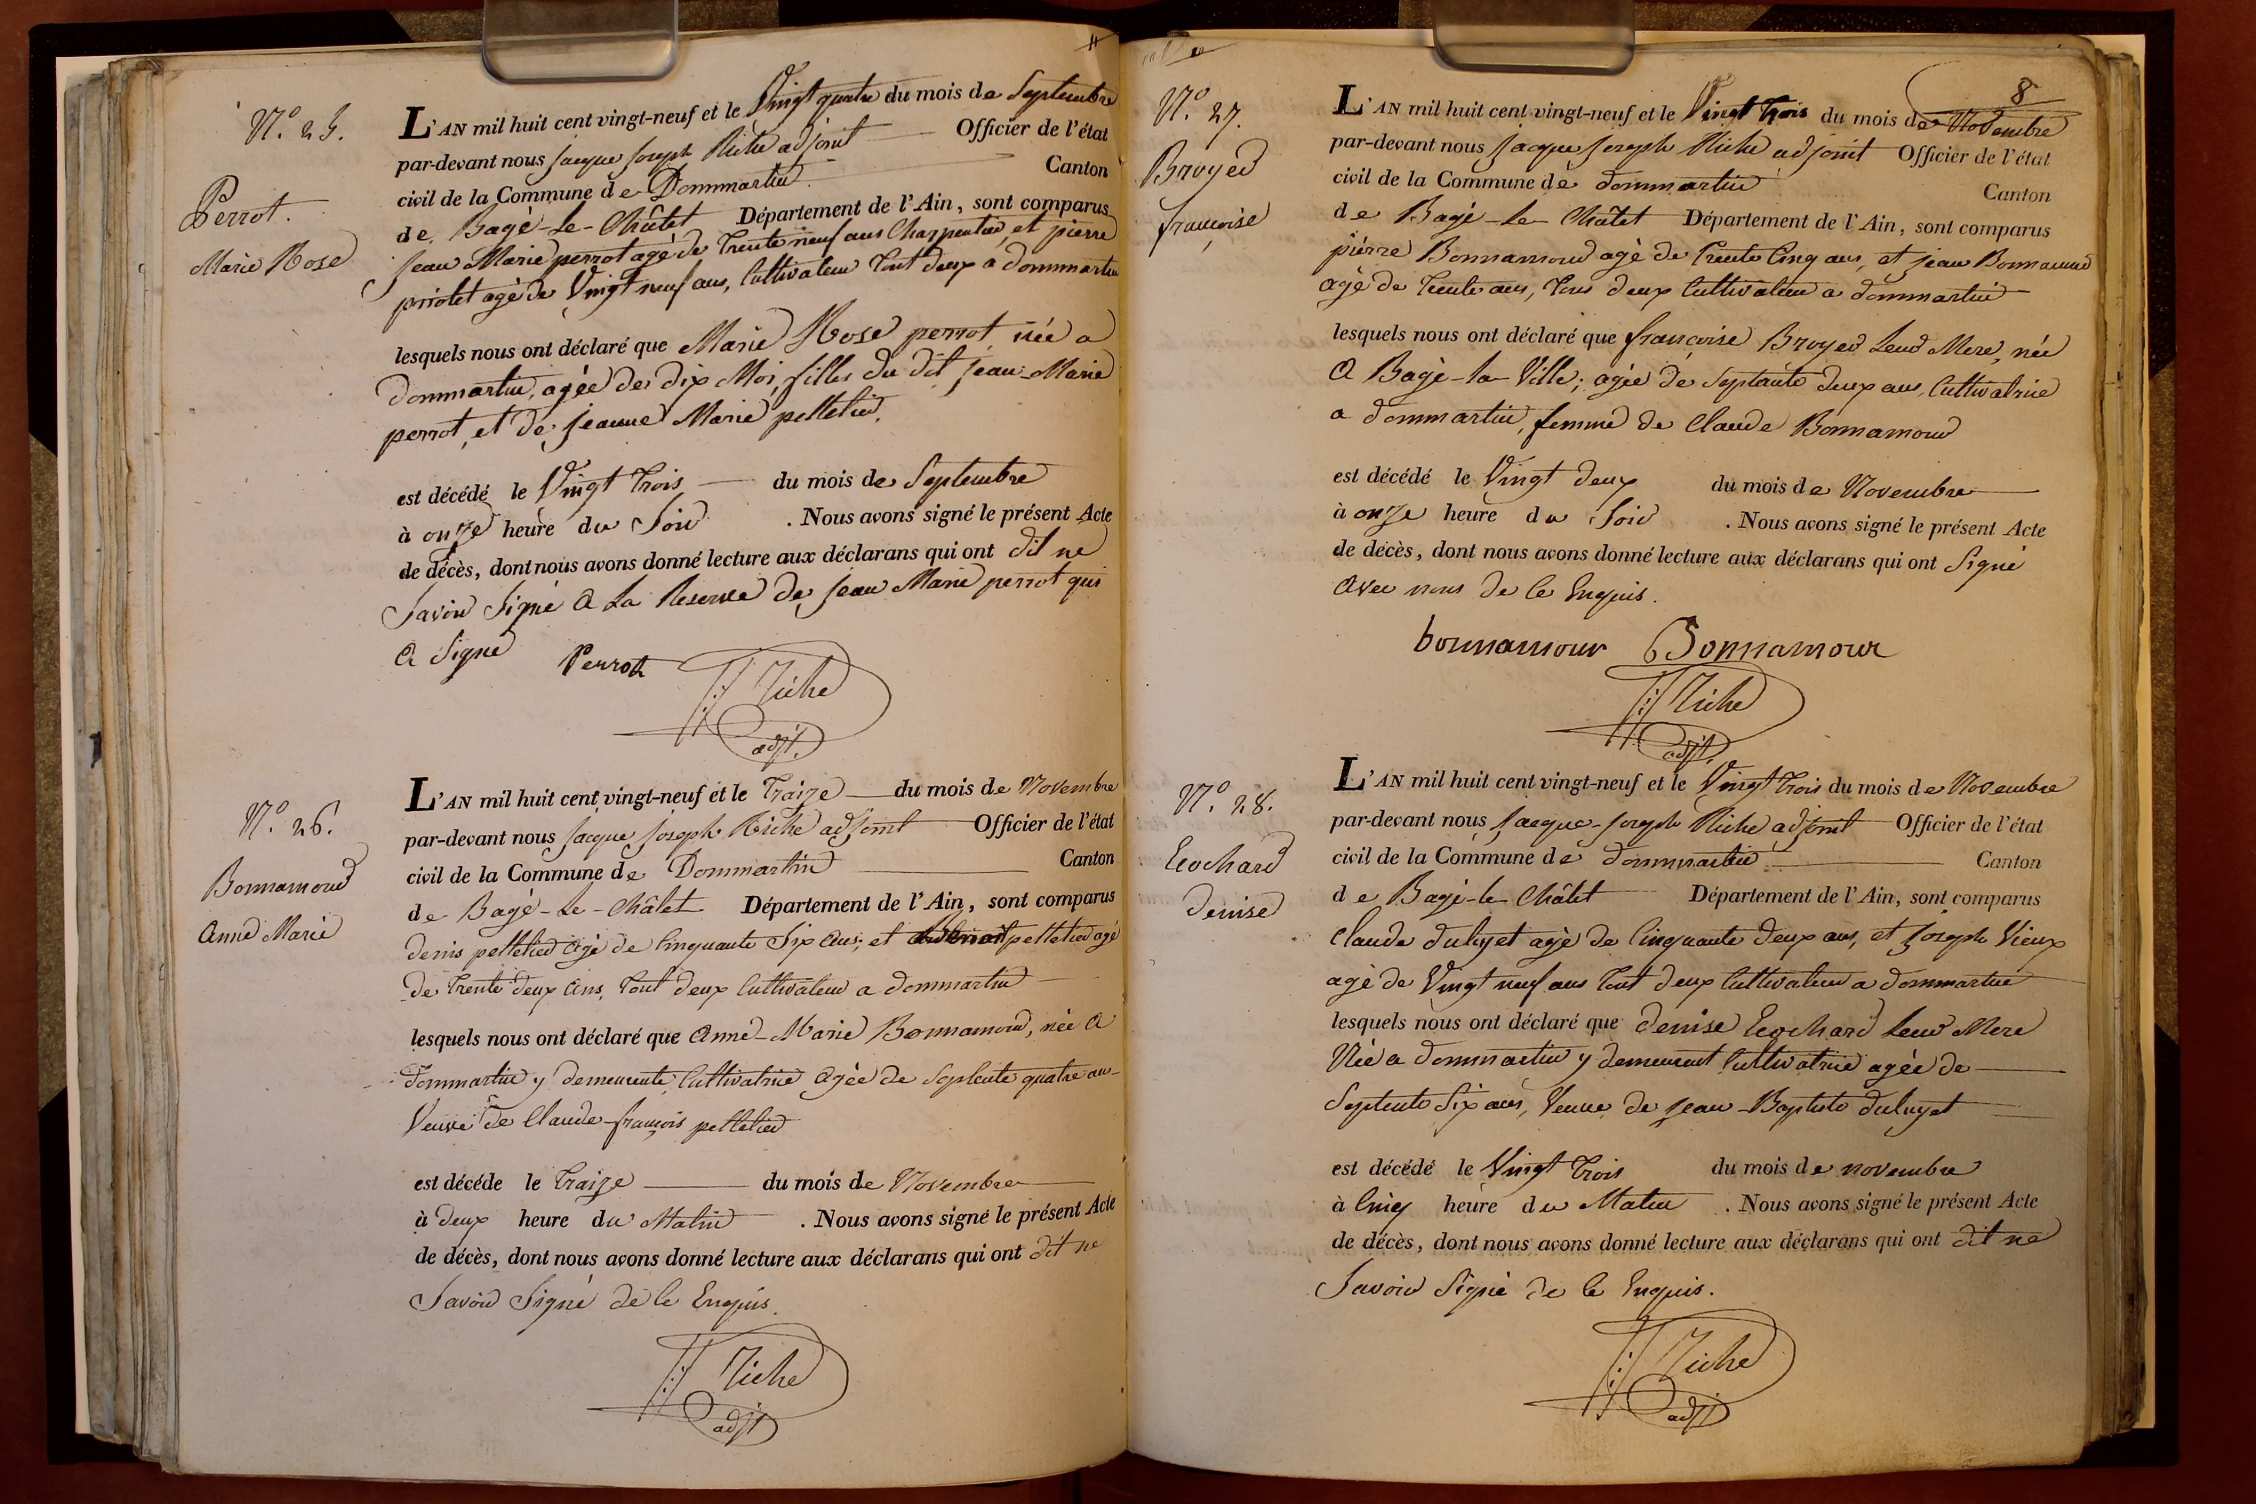 N.º 25.
Perrot.
Marie Rose
L'AN mil huit cent vingt-neuf et le Vingt quatre du mois de Septembre
par-devant nous Jacque Joseph Riche adjoint Officier de l'état
civil de la Commune de Dommartin Canton
de Bagé-Le-Châtel Département de l'Ain, sont comparus
Jean Marie perrot agé de Trente neuf ans Charpentier, et pierre
priolet agé de Vingt neuf ans, Cultivateur Tout deux a dommartin
lesquels nous ont déclaré que Marie Rose perrot, née a
dommartin, agée de dix Moi, filles du dit Jean-Marie
perrot, et de Jeanne Marie pelletier.
est décédé le Vingt Trois du mois de Septembre
à onze heure du Soir . Nous avons signé le présent Acte
de décès, dont nous avons donné lecture aux déclarans qui ont dit ne
Savoir Signé a La Reserve de Jean Marie perrot qui
a Signé Perrot
JJ Riche
adjt.
N.º 26.
Bonnamour
Anne Marie
L'AN mil huit cent vingt-neuf et le Traize du mois de Novembre
par-devant nous Jacque Joseph Riche adjoint Officier de l'état
civil de la Commune de Dommartin Canton
de Bagé-Le-Châlet Département de l'Ain, sont comparus
denis pelletier agé de Cinquante Six ans, et pelletier agé
de Trente deux ans, Tout deux Cultivateur a dommartin
lesquels nous ont déclaré que Anne-Marie Bonnamour, née a
dommartin y demeurente Cultivatrice agée de Septente quatre an
Veuve de Claude-françois pelletier
est décédé le Traize du mois de Novembre
à deux heure du Matin . Nous avons signé le présent Acte
de décès, dont nous avons donné lecture aux déclarans qui ont dit ne
Savoir Signé de Ce Enquis.
JJ Riche
adjt
8
N.º 27.
Broyer
françoise
L'AN mil huit cent vingt-neuf et le Vingt Trois du mois de Novembre
par-devant nous Jacque Joseph Riche adjoint Officier de l'état
civil de la Commune de dommartin Canton
de Bagé-Le-Châtet Département de l'Ain, sont comparus
pierre Bonnamour agé de Trente Cinq ans, et Jean Bonnamour
agé de Trente ans, Tous deux Cultivateur a dommartin
lesquels nous ont déclaré que françoise Broyer Leur Mere, née
a Bagé-la-Ville, agée de Septante deux ans Cultivatrice
a dommartin, femme de Claude Bonnamour
est décédé le Vingt deux du mois de Novembre
à onze heure du Soir . Nous avons signé le présent Acte
de décès, dont nous avons donné lecture aux déclarans qui ont Signé
avec nous de Ce Enquis.
bonnamour Bonnamour
JJ Riche
adjt.
N.º 28.
Cochard
denise
L'AN mil huit cent vingt-neuf et le Vingt Trois du mois de Novembre
par-devant nous Jacque-Joseph Riche adjoint Officier de l'état
civil de la Commune de dommartin Canton
de Bagé-le-Châtet Département de l'Ain, sont comparus
Claude duluyet agé de Cinquante deux ans, et Joseph Vieux
agé de Vingt neuf ans Tout deux Cultivateur a dommartin
lesquels nous ont déclaré que denise Cochard Leur Mere
Née a dommartin y demeurent Cultivatrice agée de
Septente Six ans, Veuve de Jean-Baptiste duluyet
est décédé le Vingt Trois du mois de novembre
à Cinq heure du Matin . Nous avons signé le présent Acte
de décès, dont nous avons donné lecture aux déclarans qui ont dit ne
Savoir Signé de Ce Enquis.
JJ Riche
adjt